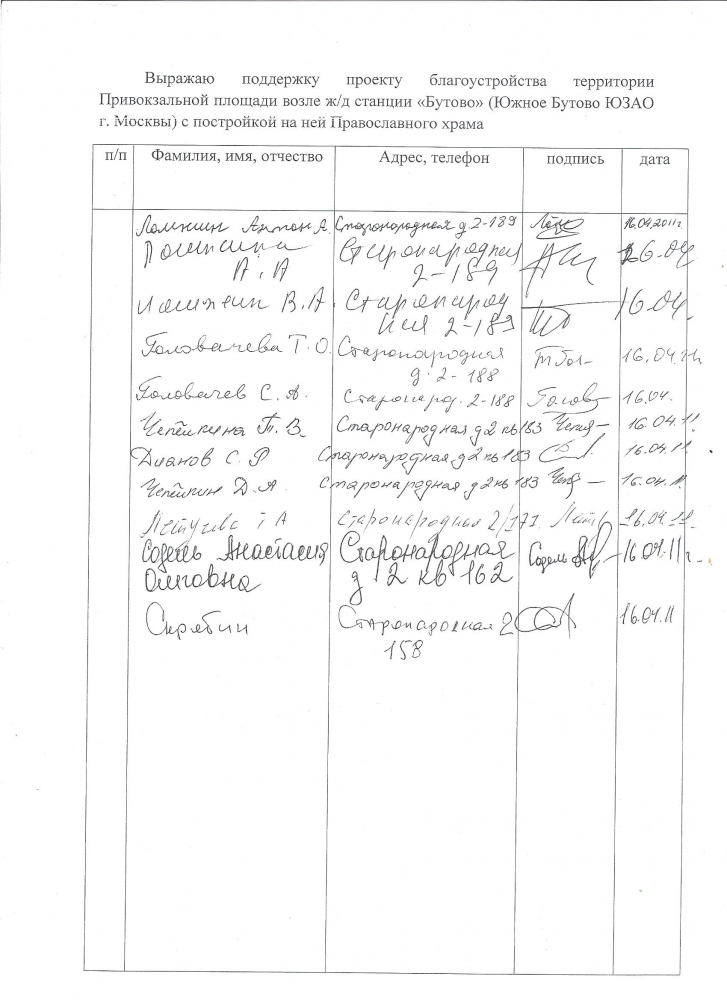 Выражаю поддержку проекту благоустройства территории
Привокзальной площади возле ж/д станции «Бутово» (Южное Бутово ЮЗАО
г. Москвы) с постройкой на ней Православного храма
п/п Фамилия, имя, отчество Адрес, телефон подпись дата
Антон А. Старонародная д. 2-189 16.04.2011г
Старонародная 16.04
А. А 2-189
В. А. Старонарод 16.04.
ная 2-189
Головачева Т. О. Старонародная 16.04.11г.
д. 2-188
Головачев С. А. Старонарод. 2-188 Голов 16.04.
Чепёлкина Т. В. Старонародная д2 кв 183 16.04.11.
Дианов С. Р Старонародная д2 кв 183 16.04.11
Чепёлкин Д. А. Старонародная д2 кв 183 16.04.11.
Т А Старонародная 2/171. 16.04.11.
Содель Анастасия Старонародная Содель 16.04.11г.
Олеговна д 2 кв 162
Скрябин Старонародная 2 16.04.11
158